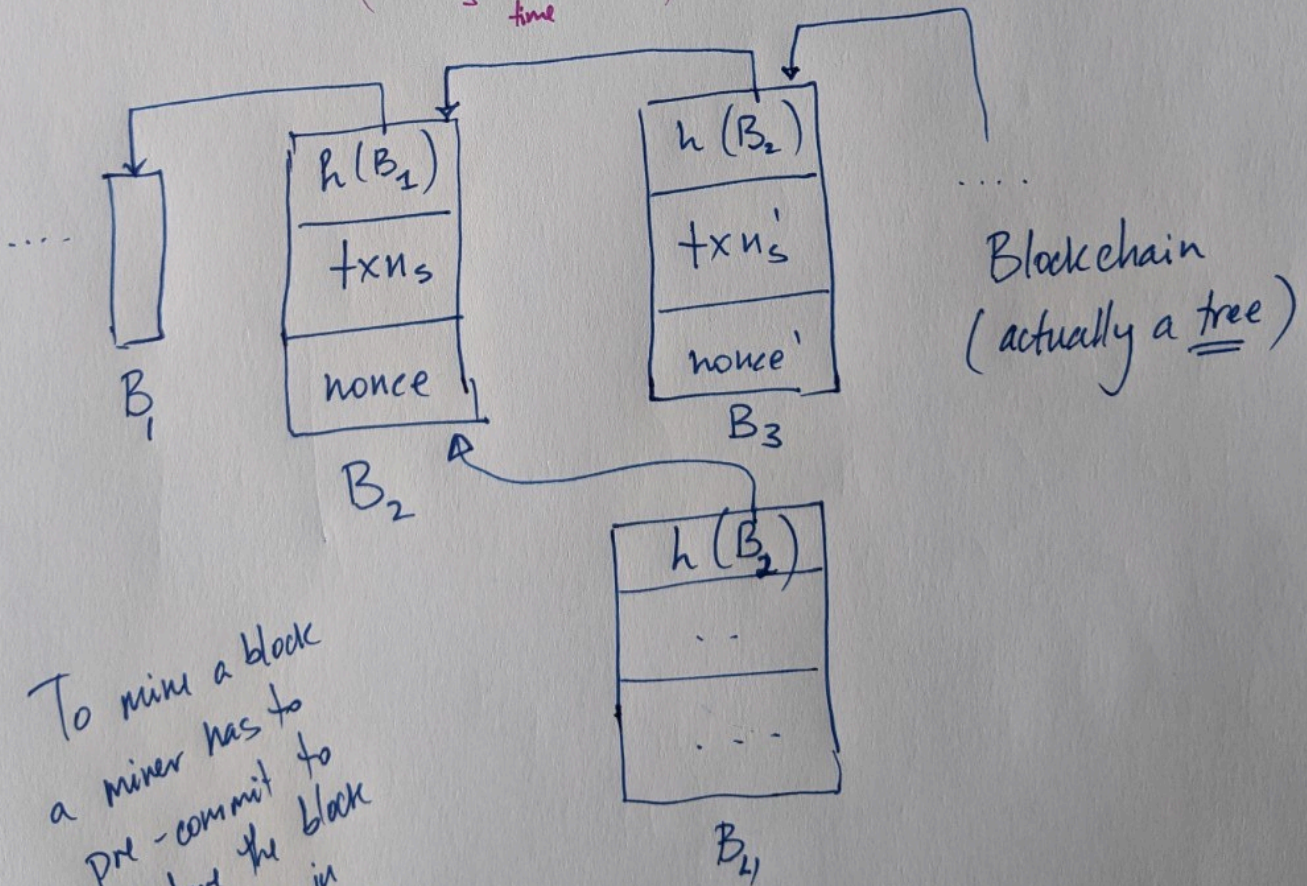 time
h (B₁)
txns
nonce
B₁
B₂
h (B₂)
txns'
nonce'
B₃
....
....
Blockchain
(actually a tree)
h (B₂)
..
...
B₄
To mine a block
a miner has to
pre-commit to
the block
in